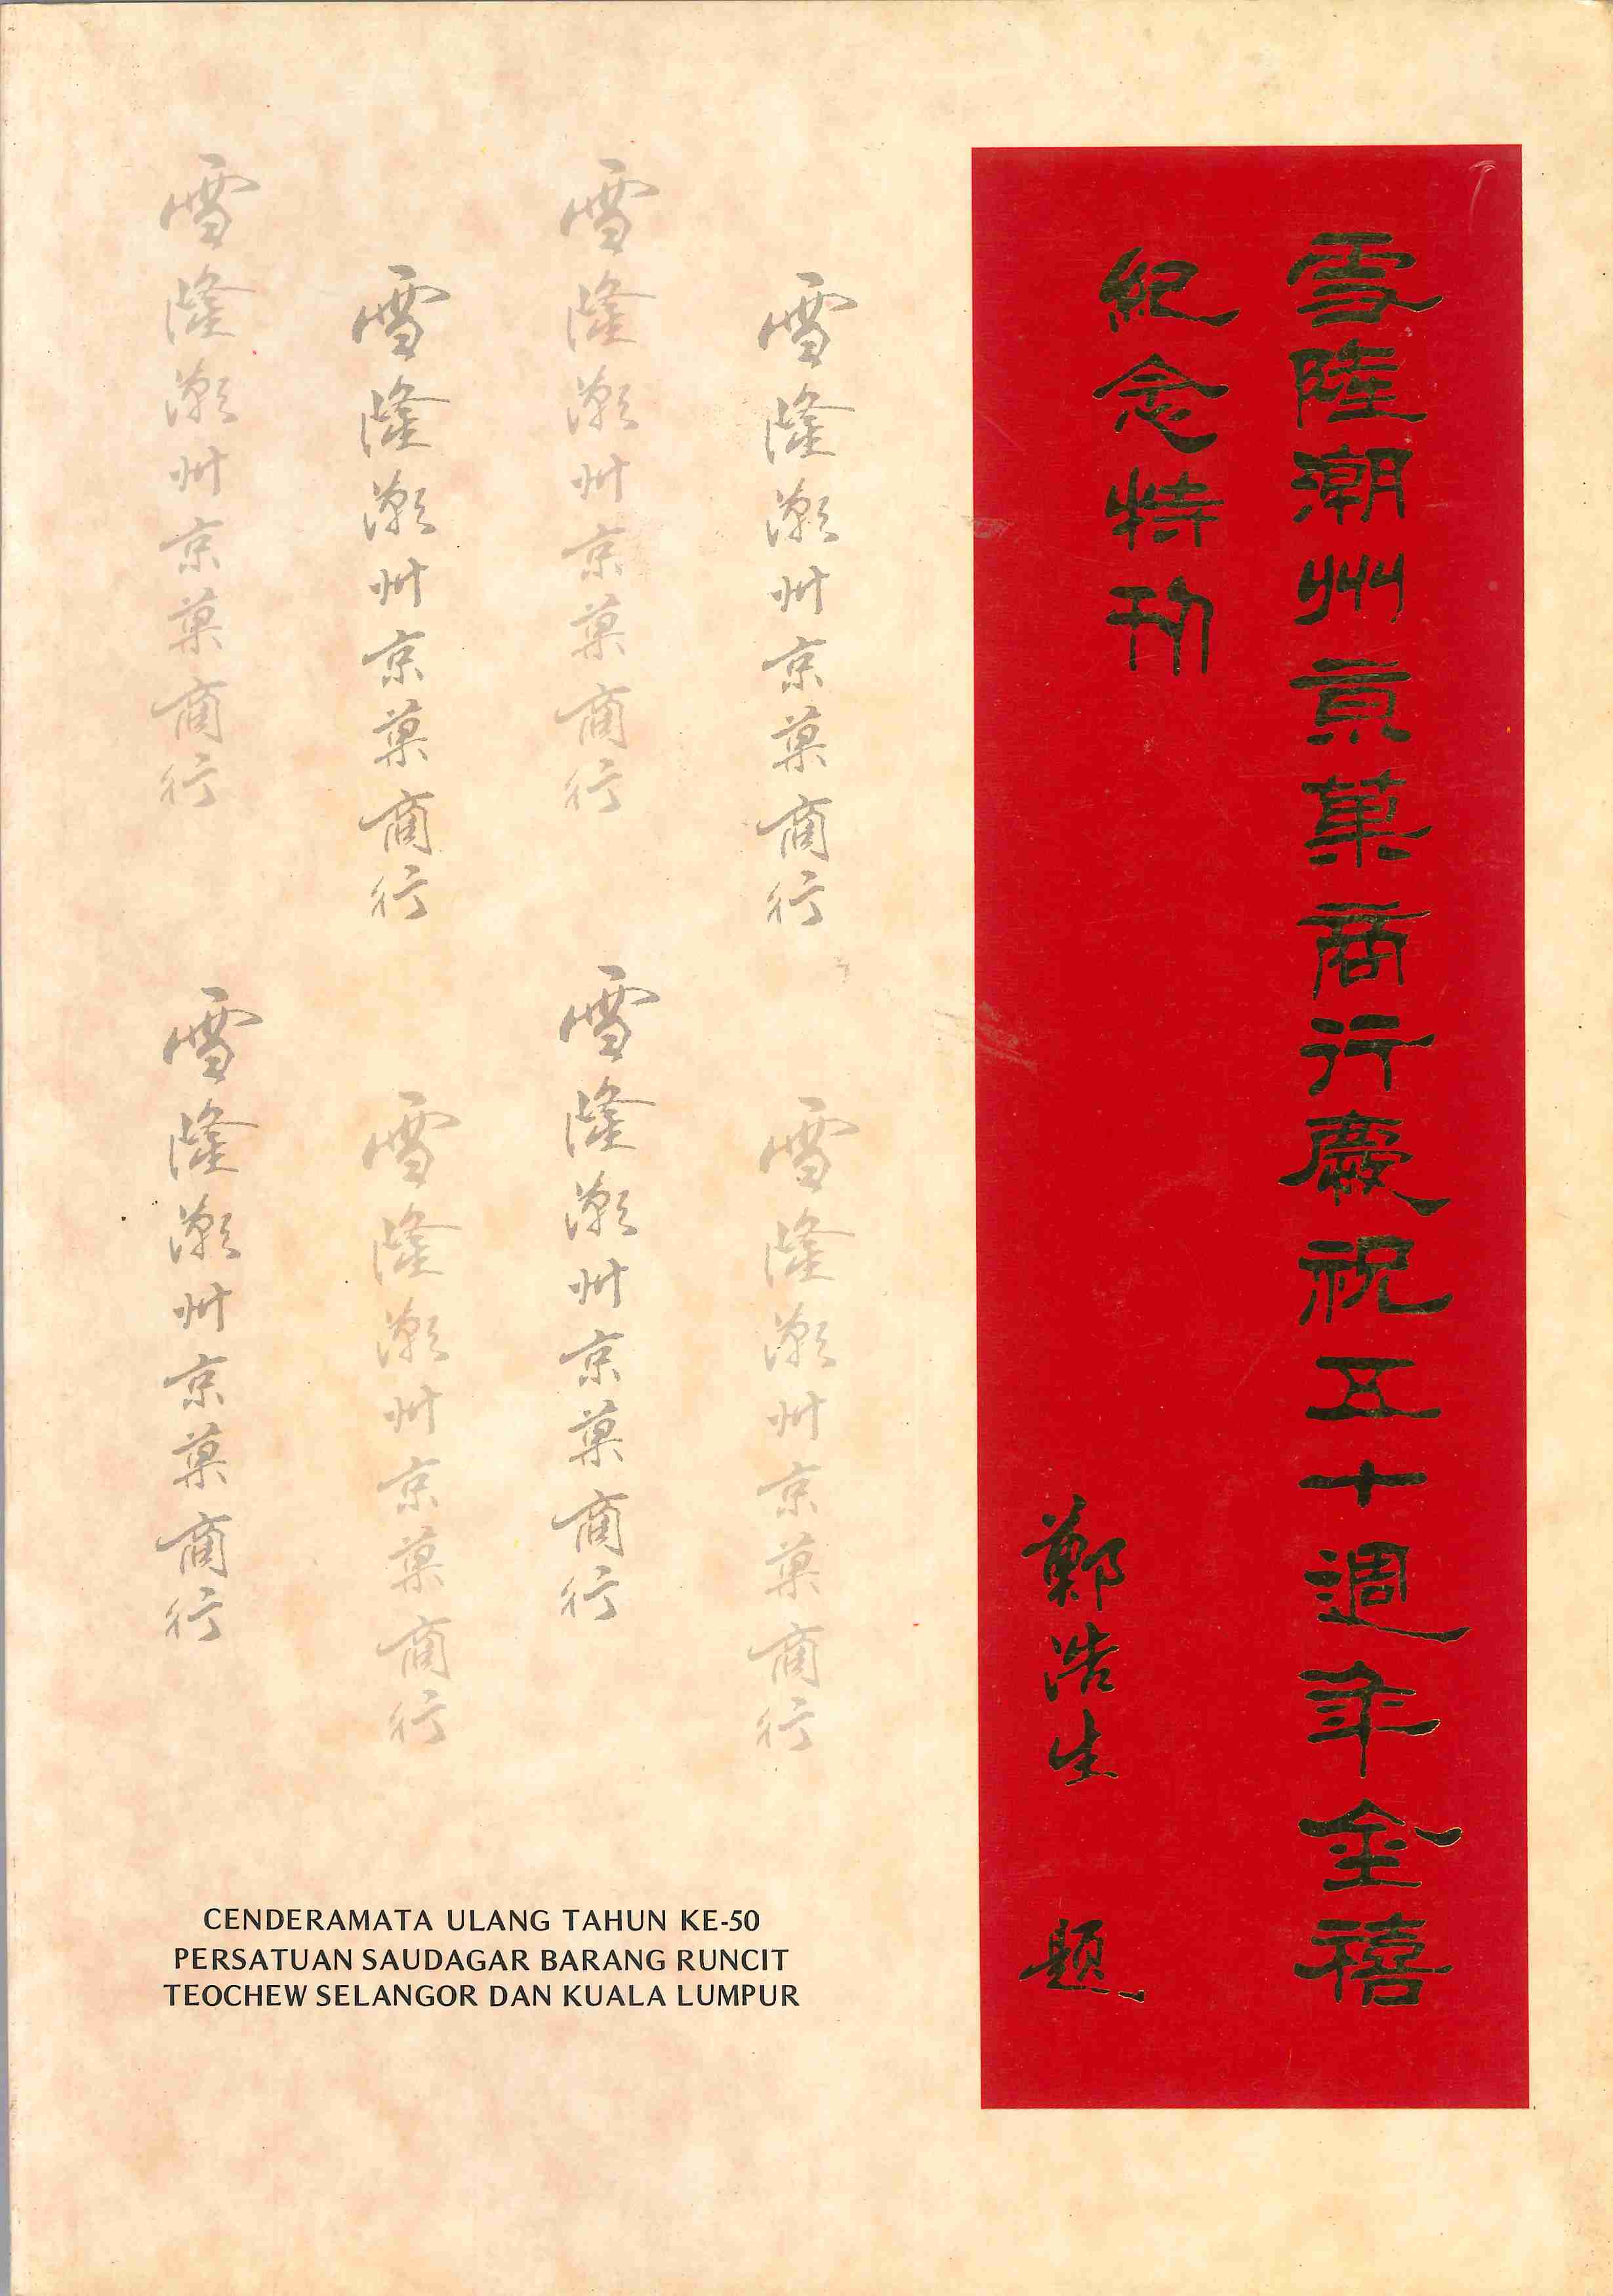 雪隆潮州京菓商行慶祝五十週年金禧
紀念特刊
鄭浩生 題
雪隆潮州京菓商行
雪隆潮州京菓商行
雪隆潮州京菓商行
雪隆潮州京菓商行
雪隆潮州京菓商行
雪隆潮州京菓商行
雪隆潮州京菓商行
雪隆潮州京菓商行
CENDERAMATA ULANG TAHUN KE-50
PERSATUAN SAUDAGAR BARANG RUNCIT
TEOCHEW SELANGOR DAN KUALA LUMPUR